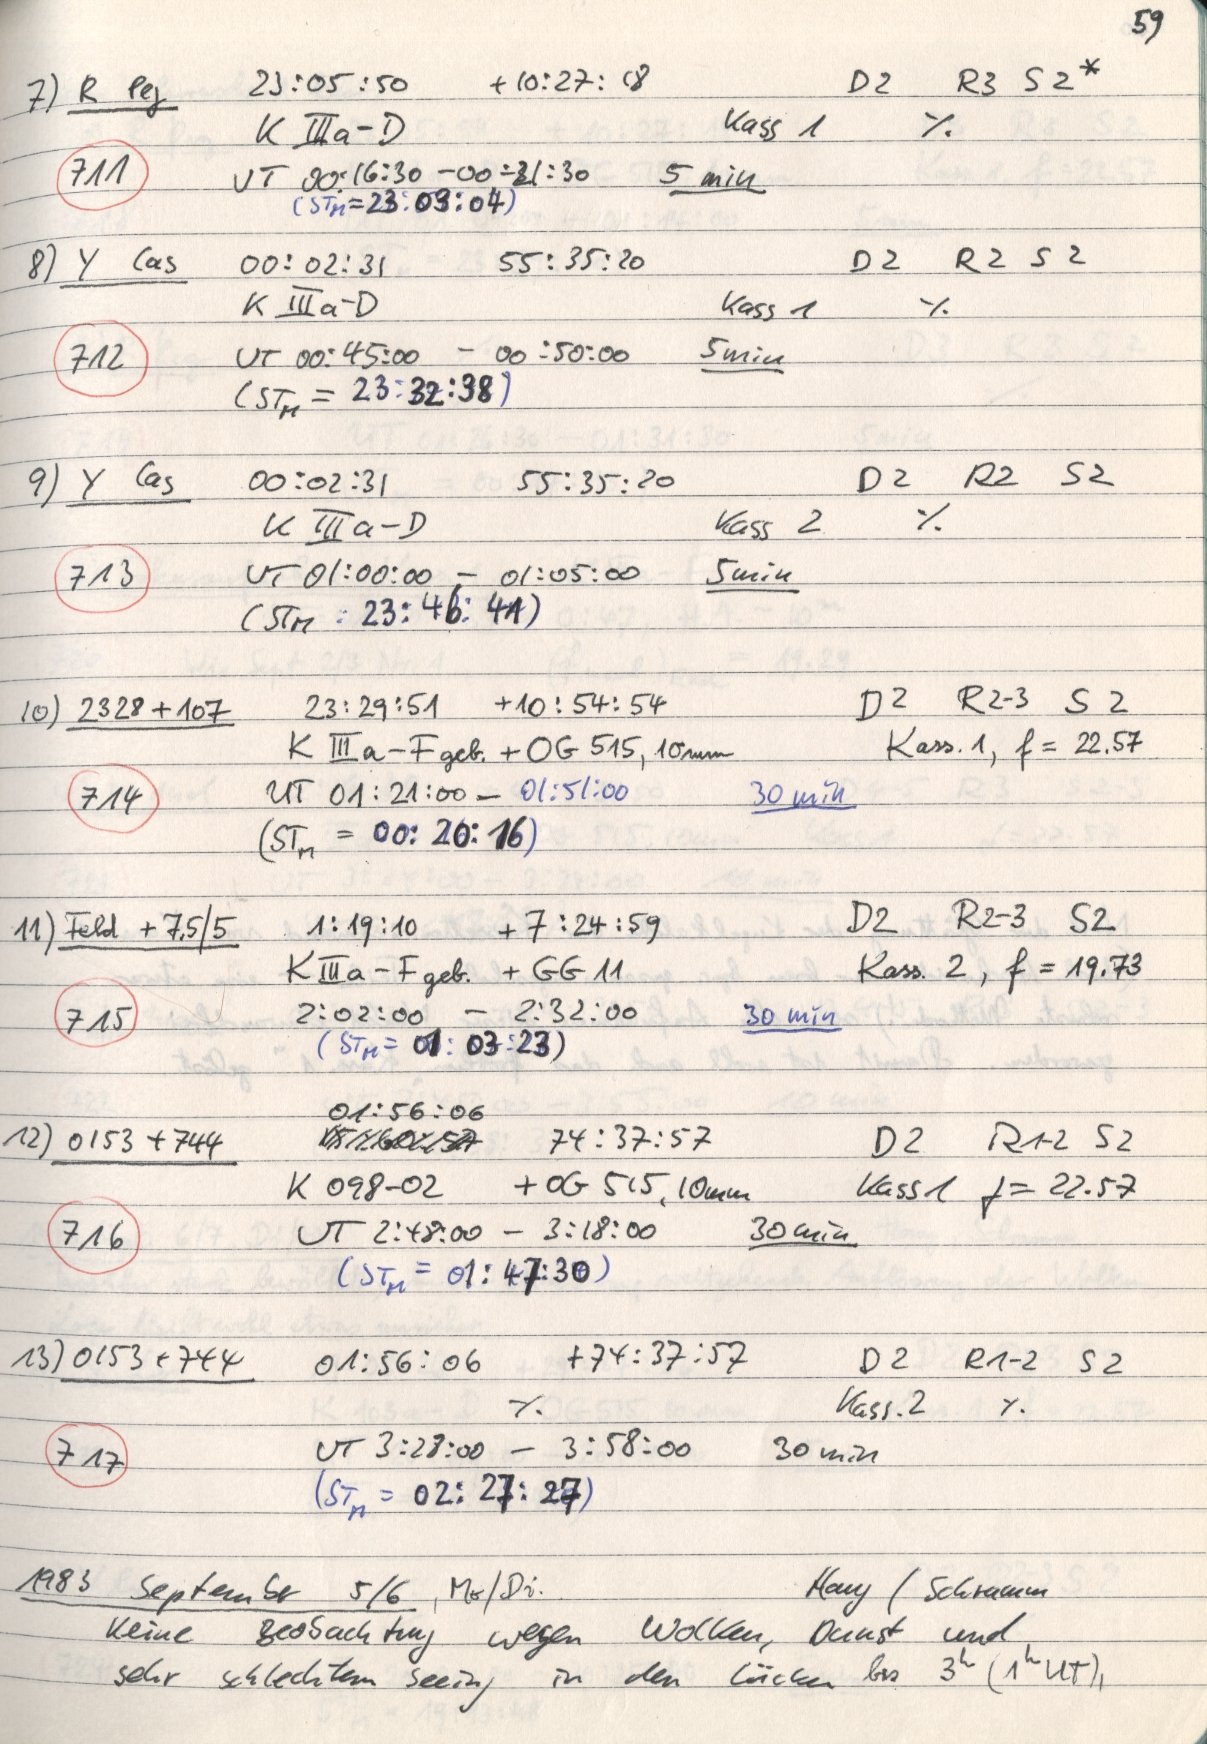 59
7) R Peg 23:05:50 +10:27:18 D2 R3 S2*
K IIIa-D Kass 1 ⁒
711 UT 00:16:30 - 00:21:30 5 min
(STM = 23:03:04)
8) Y Cas 00:02:31 55:35:20 D2 R2 S2
K IIIa-D Kass 1 ⁒
712 UT 00:45:00 - 00:50:00 5min
(STM = 23:32:38)
9) Y Cas 00:02:31 55:35:20 D2 R2 S2
K IIIa-D Kass 2 ⁒
713 UT 01:00:00 - 01:05:00 5min
(STM = 23:46:41)
10) 2328+107 23:29:51 +10:54:54 D2 R2-3 S2
K IIIa-F geb. + OG 515, 10mm Kass. 1, f = 22.57
714 UT 01:21:00 - 01:51:00 30 min
(STM = 00:20:16)
11) Feld +7,5/5 1:19:10 +7:24:59 D2 R2-3 S2
K IIIa-F geb. + GG 11 Kass. 2, f = 19.73
715 2:02:00 - 2:32:00 30 min
(STM = 01:03:23)
01:56:06
12) 0153+744 74:37:57 D2 R1-2 S2
K 098-02 + OG 515, 10mm Kass 1 f = 22.57
716 UT 2:48:00 - 3:18:00 30 min
(STM = 01:47:30)
13) 0153+744 01:56:06 +74:37:57 D2 R1-2 S2
⁒ Kass. 2 ⁒
717 UT 3:28:00 - 3:58:00 30 min
(STM = 02:27:27)
1983 September 5/6, Mo/Di. Haug / Schramm
Keine Beobachtung wegen Wolken, Dunst und
sehr schlechtem seeing in den Lücken bis 3h (1h UT),